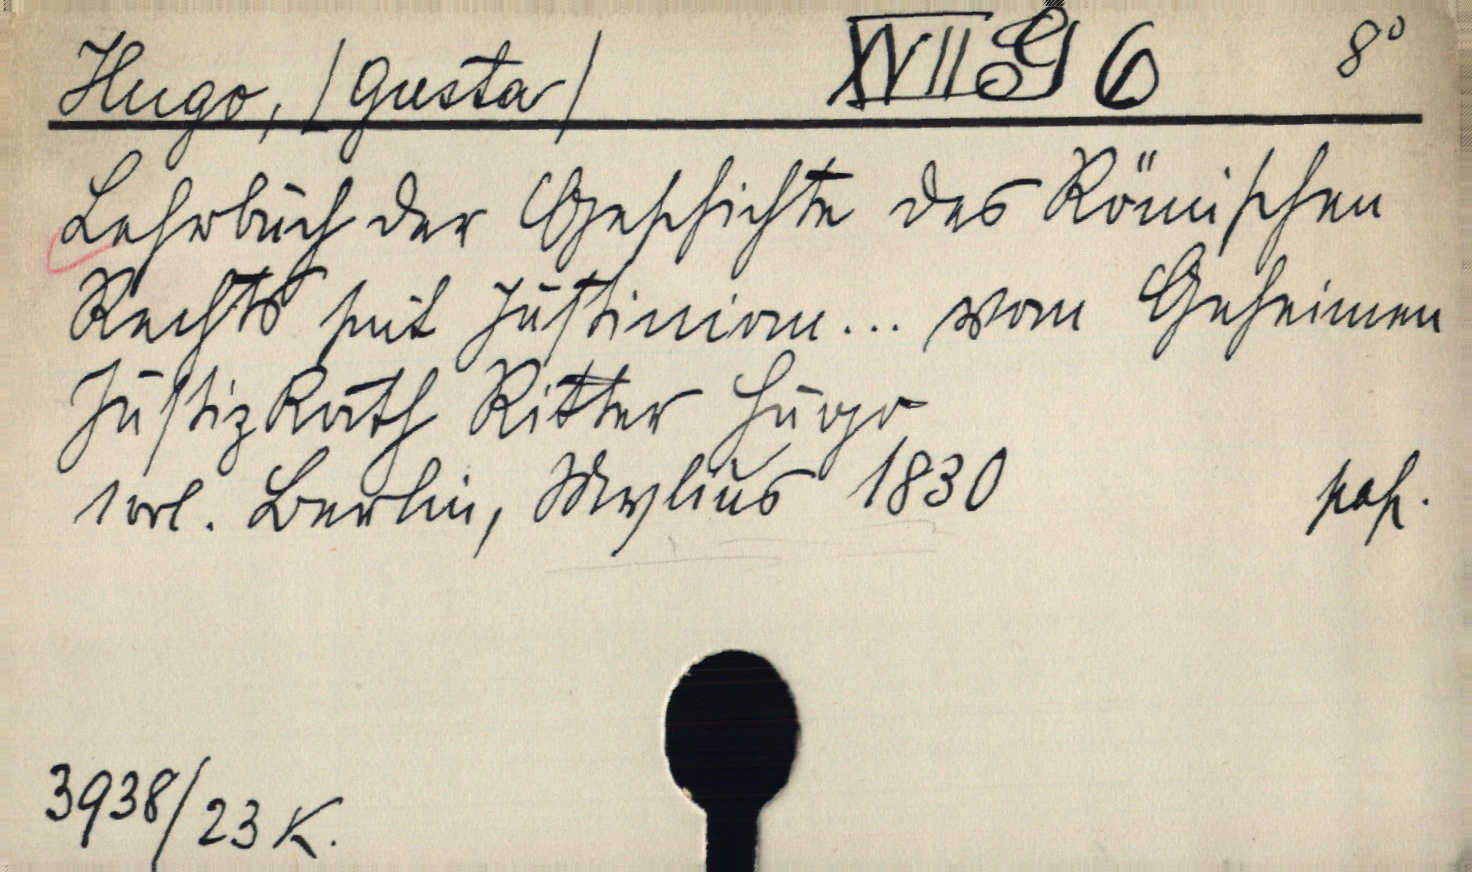 Hugo, /Gusta/ XVII G 6 8°
Lehrbuch der Geschichte des Römischen
Rechts seit Justinian... vom Geheimen
JustizRath Ritter Hugo
1 vol. Berlin, Mylius 1830
3938/23 K.